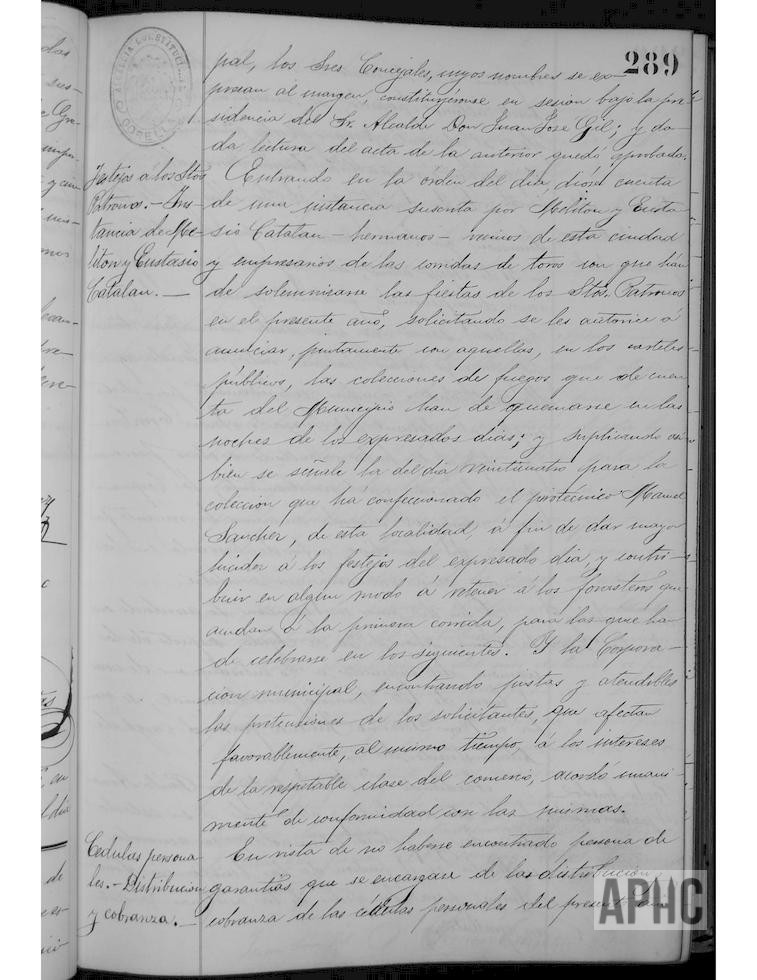 289
ALCALDIA CONSTITUCIONAL
CORELLA
pal, los Sres Concejales, cuyos nombres se ex-
presan al margen, constituyéronse en sesion bajo la pre-
sidencia del Sr. Alcalde Don Juan José Gil; y da-
da lectura del acta de la anterior quedó aprobada.
Festejos á los Stos
Patronos.- Ins-
tancia de Me-
liton y Eustasio
Catalan.—
Entrando en la órden del dia, dióse cuenta
de una instancia suscrita por Meliton y Eusta-
sio Catalan - hermanos - vecinos de esta ciudad
y empresarios de las corridas de toros con que han
de solemnizarse las fiestas de los Stos. Patronos
en el presente año, solicitando se les autorice á
anunciar, juntamente con aquellas, en los carteles
públicos, las colecciones de fuegos que de cuen-
ta del Municipio han de quemarse en las
noches de los expresados dias; y suplicando
bien se señale la del dia veinticuatro para la
coleccion que há confeccionado el pirotécnico Manuel
Sanchez, de esta localidad, á fin de dar mayor
lucidez á los festejos del expresado dia, y contri-
buir en algun modo á retener á los forasteros que
acudan á la primera corrida, para las que ha
de celebrarse en los siguientes. Y la Corpora-
cion municipal, encontrando justas y atendibles
las pretensiones de los solicitantes, que afectan
favorablemente, al mismo tiempo, á los intereses
de la respetable clase del comercio, acordó unani-
mente de conformidad con las mismas.
Cédulas persona-
les.- Distribucion
y cobranza.—
En vista de no haberse encontrado persona de
garantías que se encargase de la distribucion
cobranza de las cédulas personales del presente
APHC